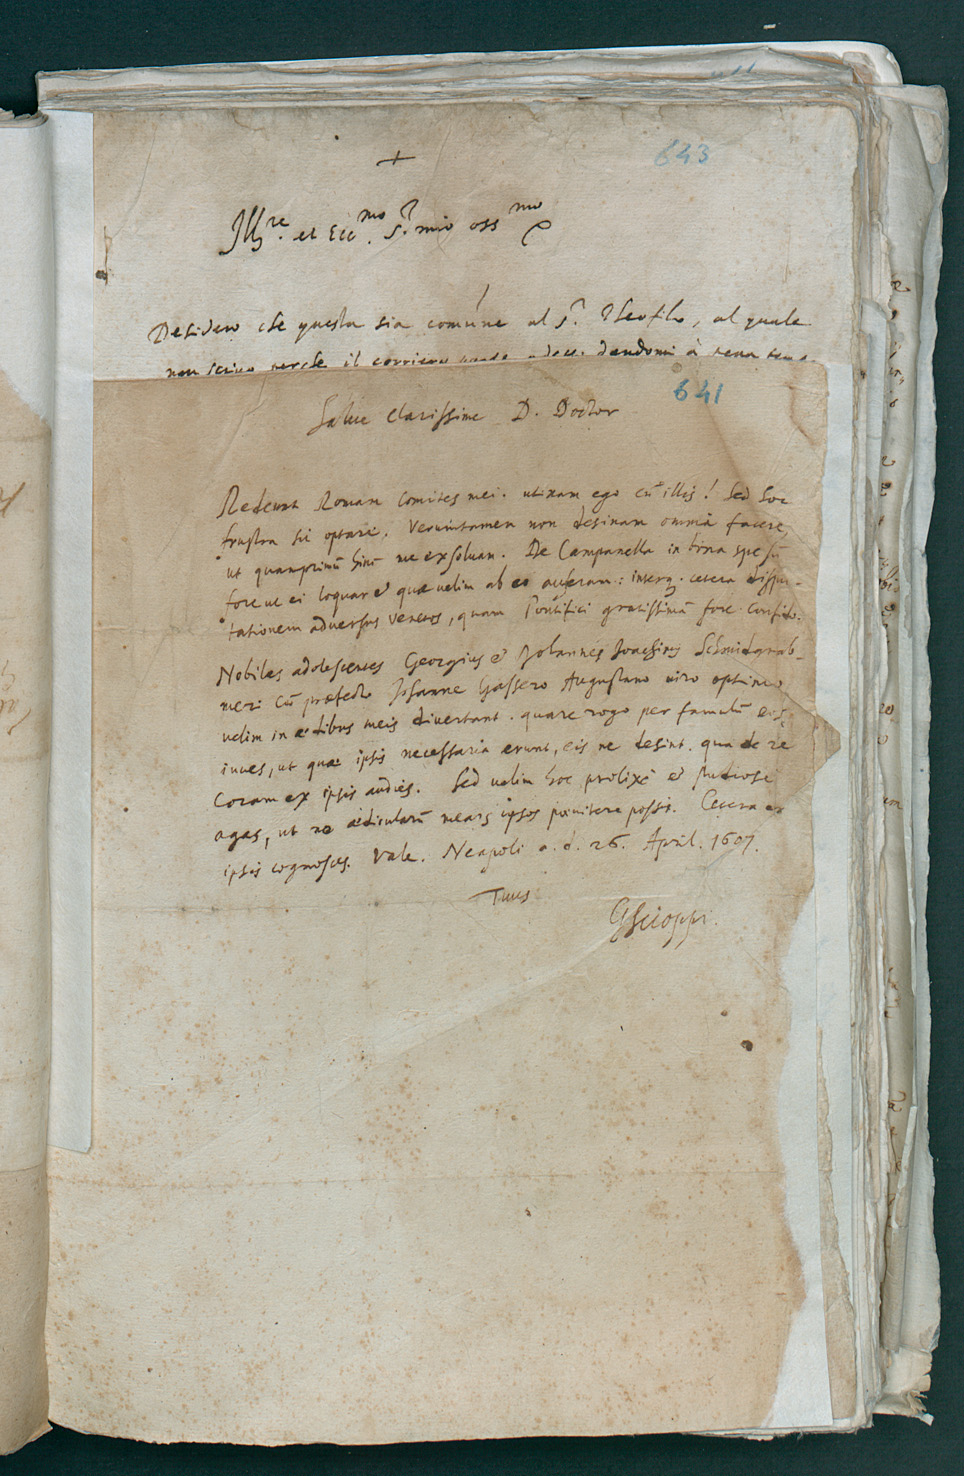 643
+
Ill.re et Ecc.mo S.r mio oss.mo
Desidero che questa sia comune al S.r Theofilo, al quale
non scrivo perche il corriero dandomi à pena
641
Salue Clarissime D. Doctor
Redeunt Romam Comites mei. utinam ego cũ illis! Sed hoc
frustra sit optare. Veruntamen non desinam omnia facere,
ut quamprimũ hinc me exsoluam. De Campanella in bona spe sũ
fore ut ei loquar & quae uelim ab eo auferam: interq. cetera dispu-
tationem aduersus Venetos, quam Pontifici gratissimã fore confido.
Nobiles adolescentes Georgius & Johannes Joachimus Schmidgrab-
neri cũ praefecto Johanne Gassero Augustano uiro optimo
uelim in aedibus meis diuertant. quare rogo per famulũ eos
iuues, ut quae ipsis necessaria erunt, eis ne desint. qua de re
Coram ex ipsis audies. Sed uelim hoc prolixè & studiose
agas, ut ne aedicularũ mearũ ipsos poenitere possit. Cetera ex
ipsis cognosces. Vale. Neapoli a. d. 26. April. 1607.
Tuus
GScioppi.